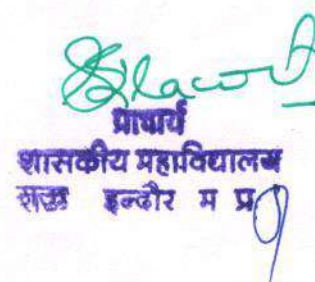 प्राचार्य
शासकीय महाविद्यालय
इन्दौर म प्र